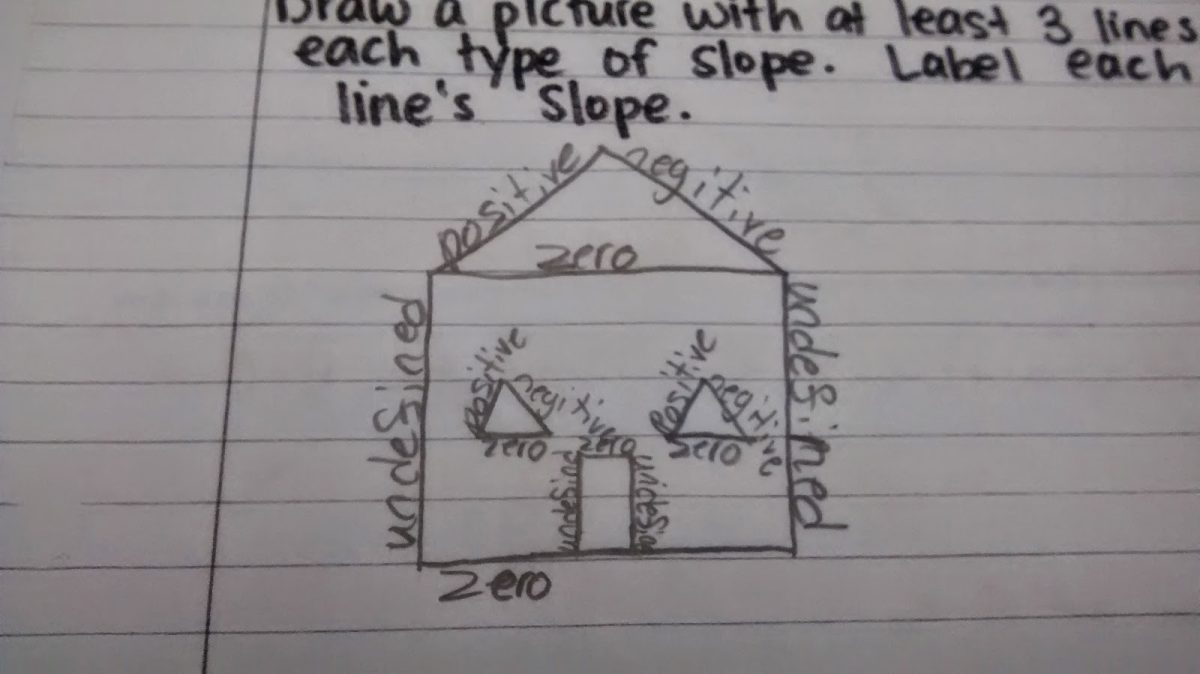 Draw a picture with at least 3 lines
each type of slope. Label each
line's slope.
positive
negitive
zero
undefined
undefined
positive
negitive
zero
positive
negitive
zero
zero
undefined
zero